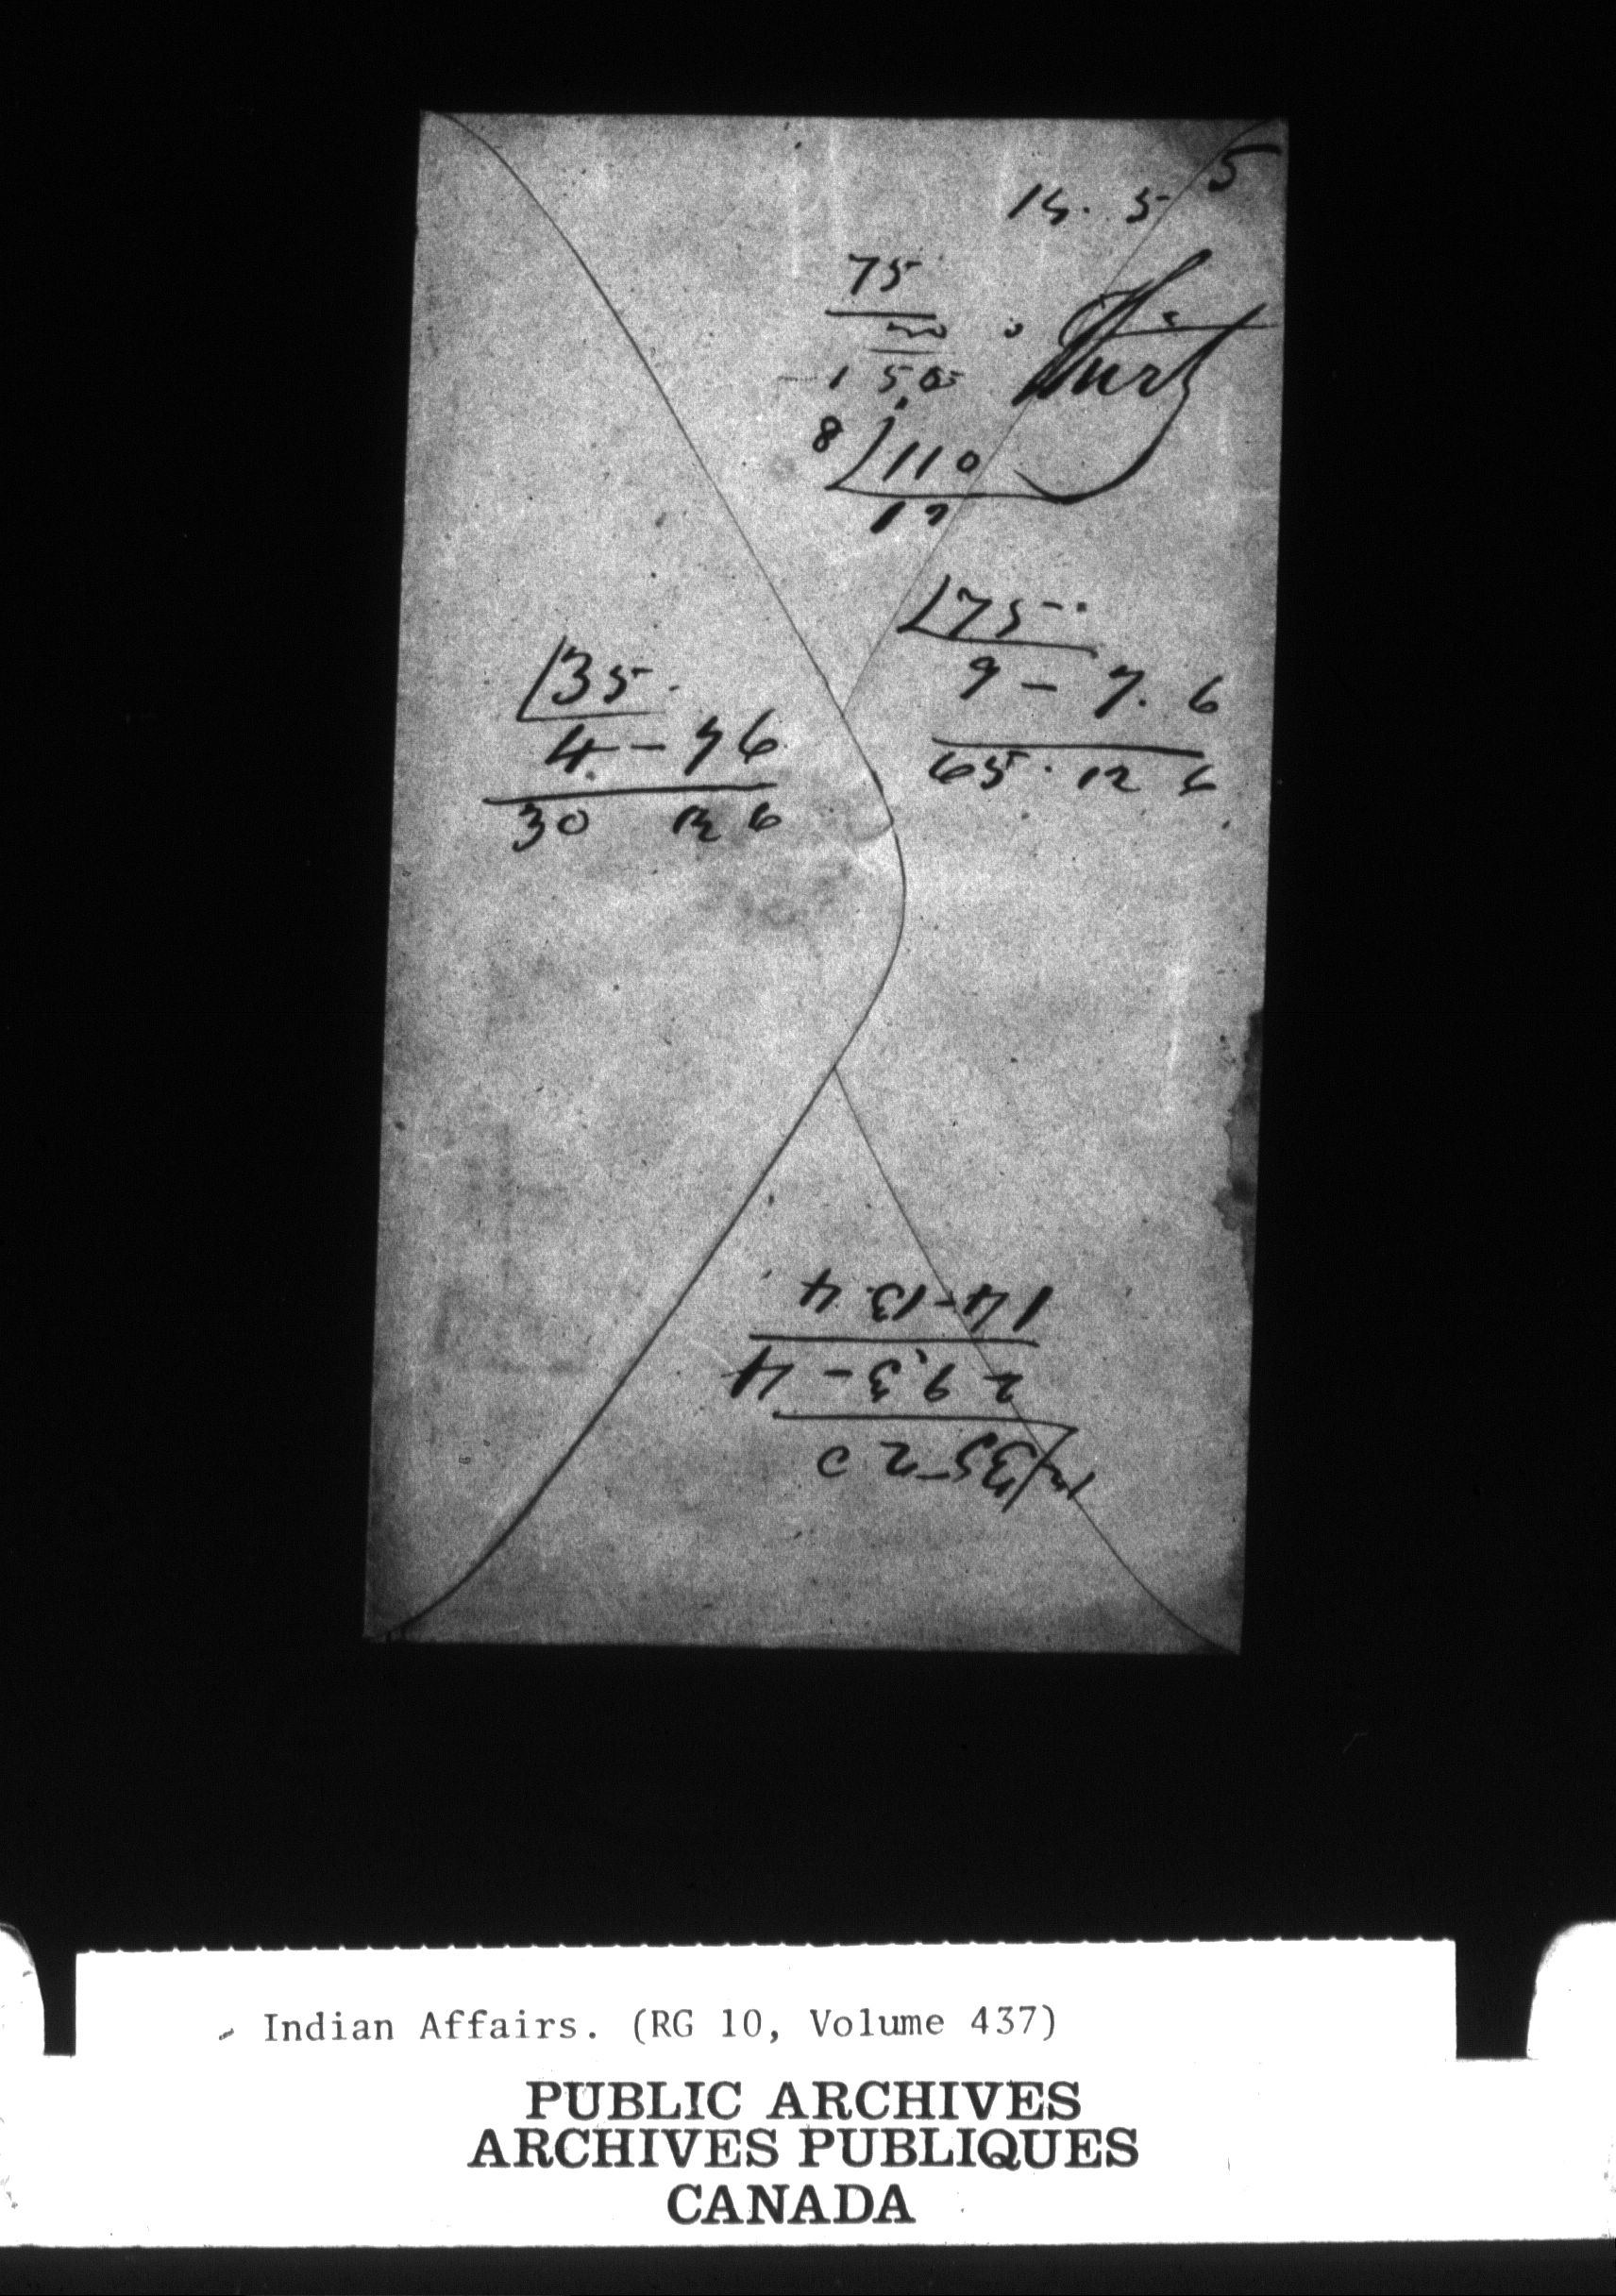 5
14. 5
75
150
8/110
/75
9 - 7. 6
65. 12 6
/35.
4. - 7 6
30 12 6
14-13.4
2 9.3-4
12/35-2 0
Indian Affairs. (RG 10, Volume 437)
PUBLIC ARCHIVES
ARCHIVES PUBLIQUES
CANADA